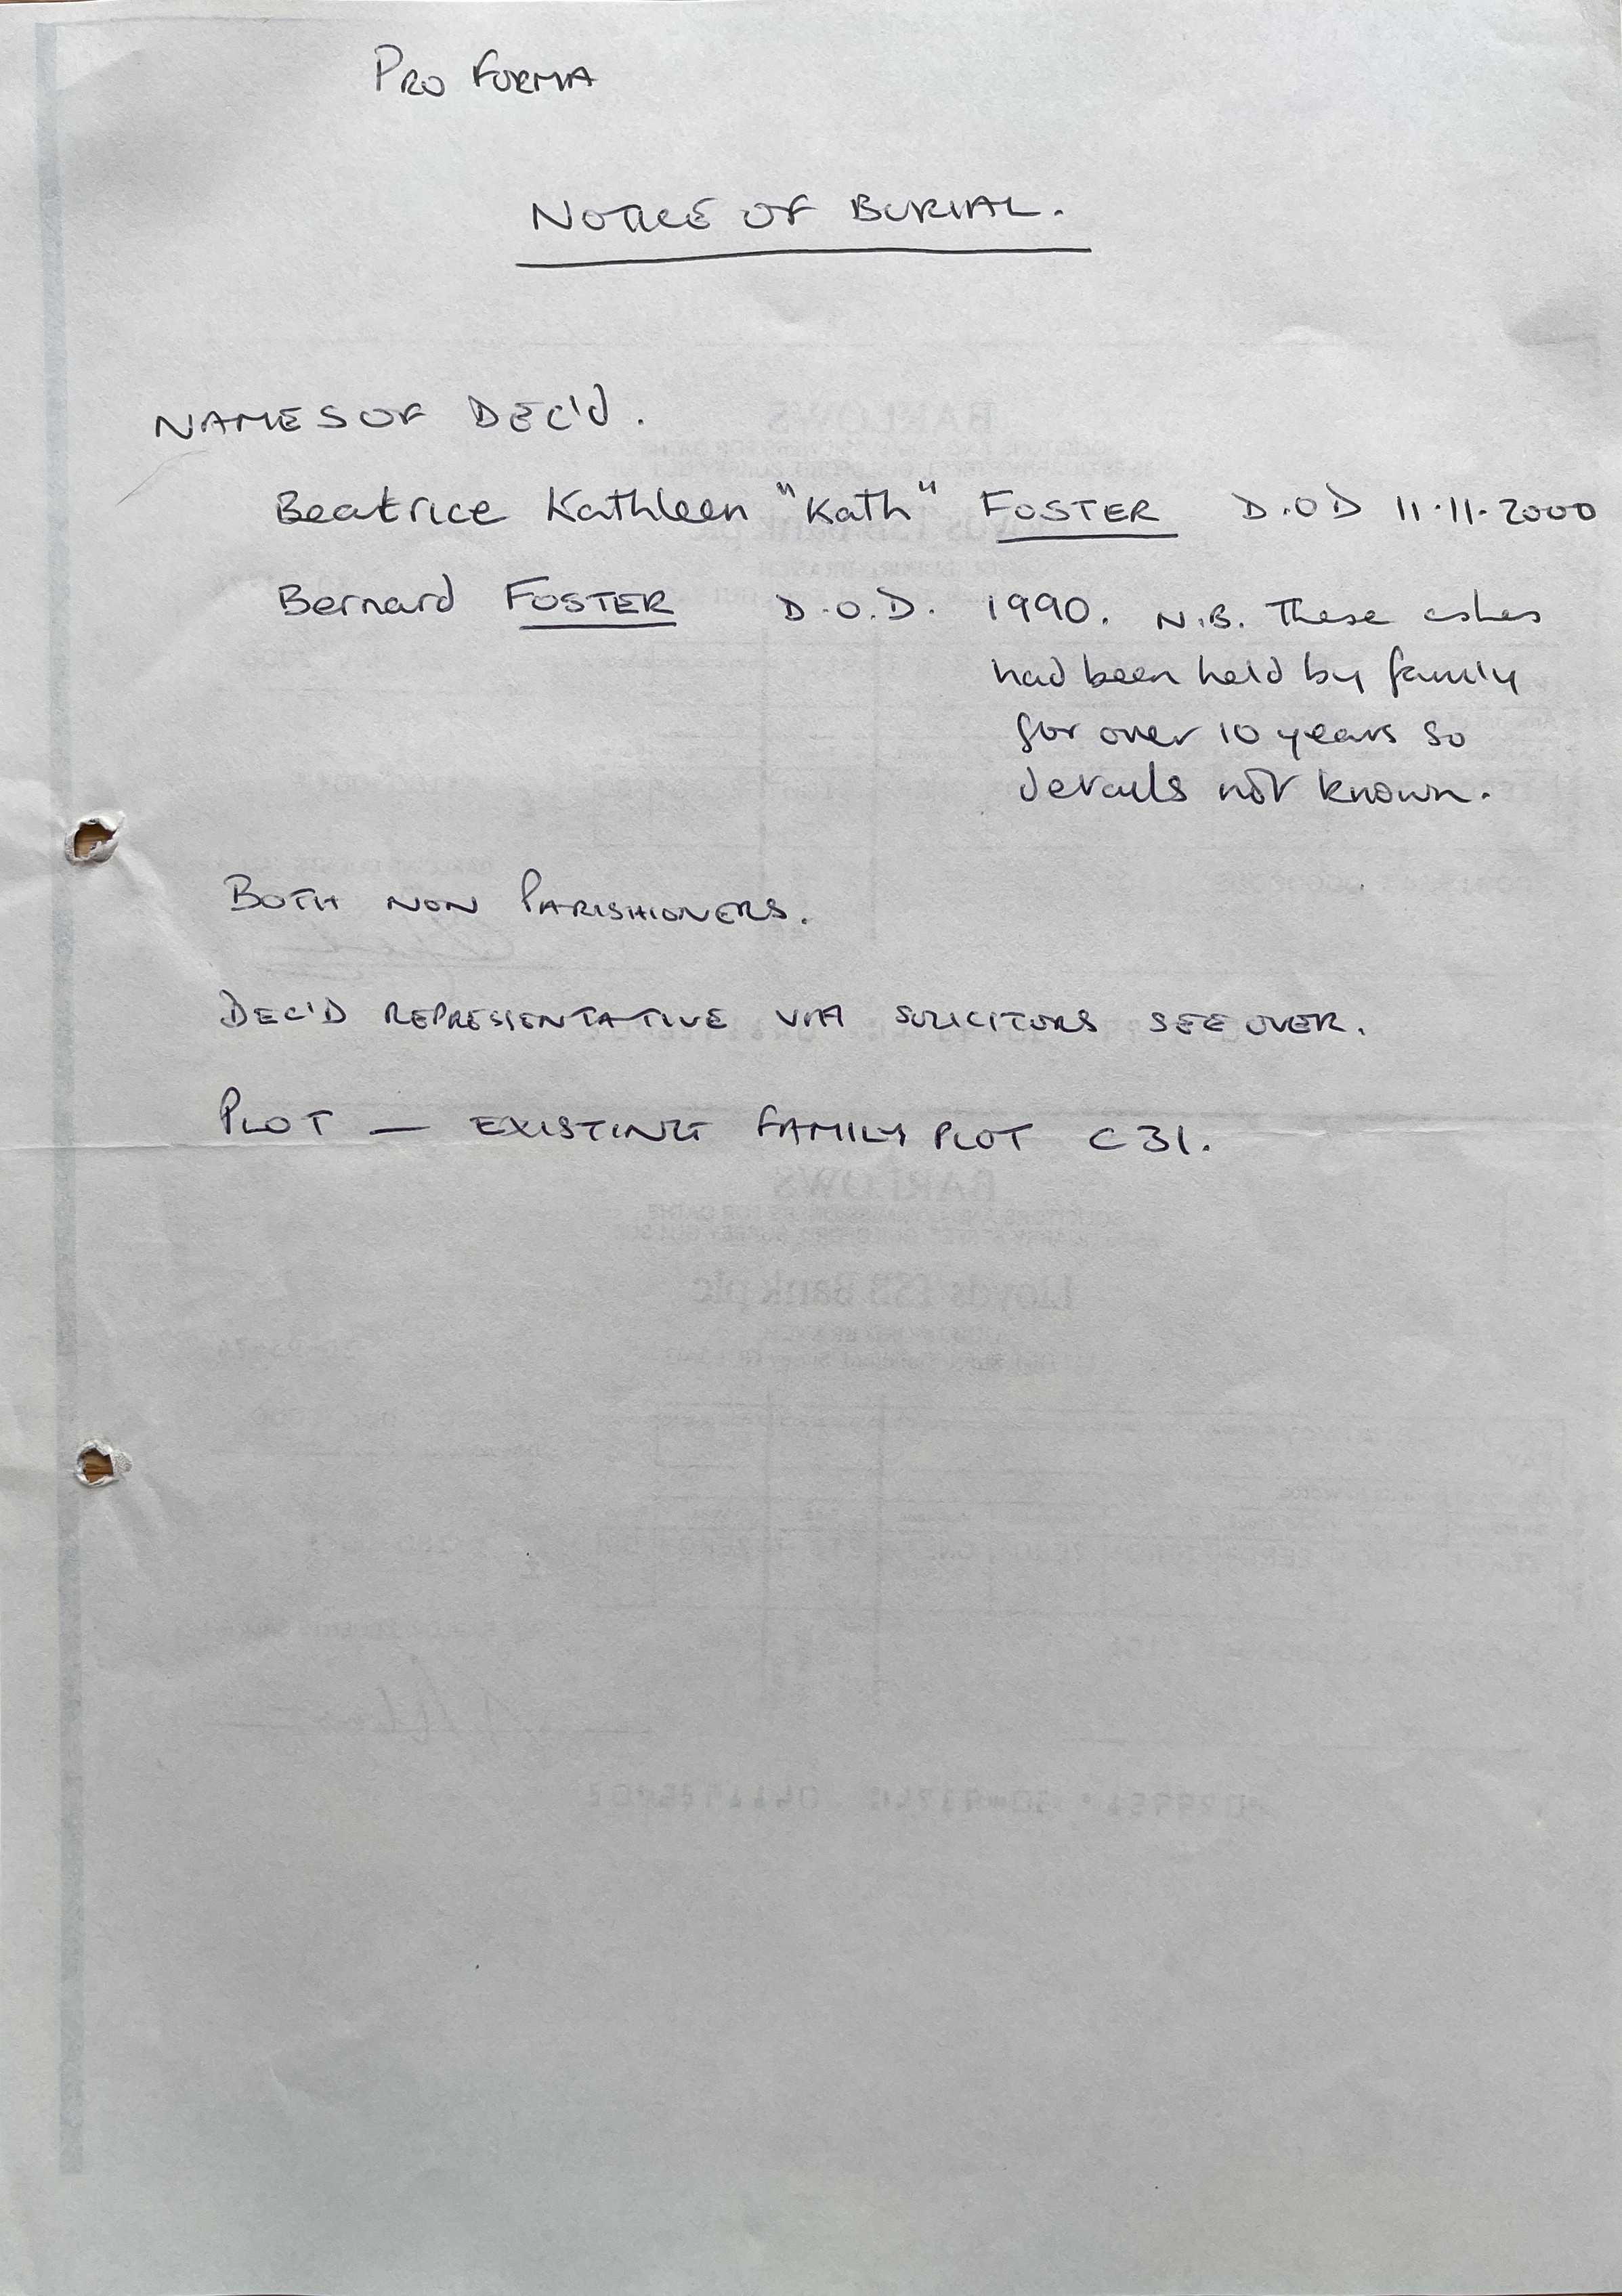 PRO FORMA
NOTICE OF BURIAL.
NAMES OF DEC'D.
Beatrice Kathleen "Kath" FOSTER D.O.D 11.11.2000
Bernard FOSTER D.O.D. 1990. N.B. These ashes
had been held by family
for over 10 years so
details not known.
BOTH NON PARISHIONERS.
DEC'D REPRESENTATIVE VIA SOLICITORS SEE OVER.
PLOT — EXISTING FAMILY PLOT C31.
BARLOWS
Lloyds TSB Bank plc